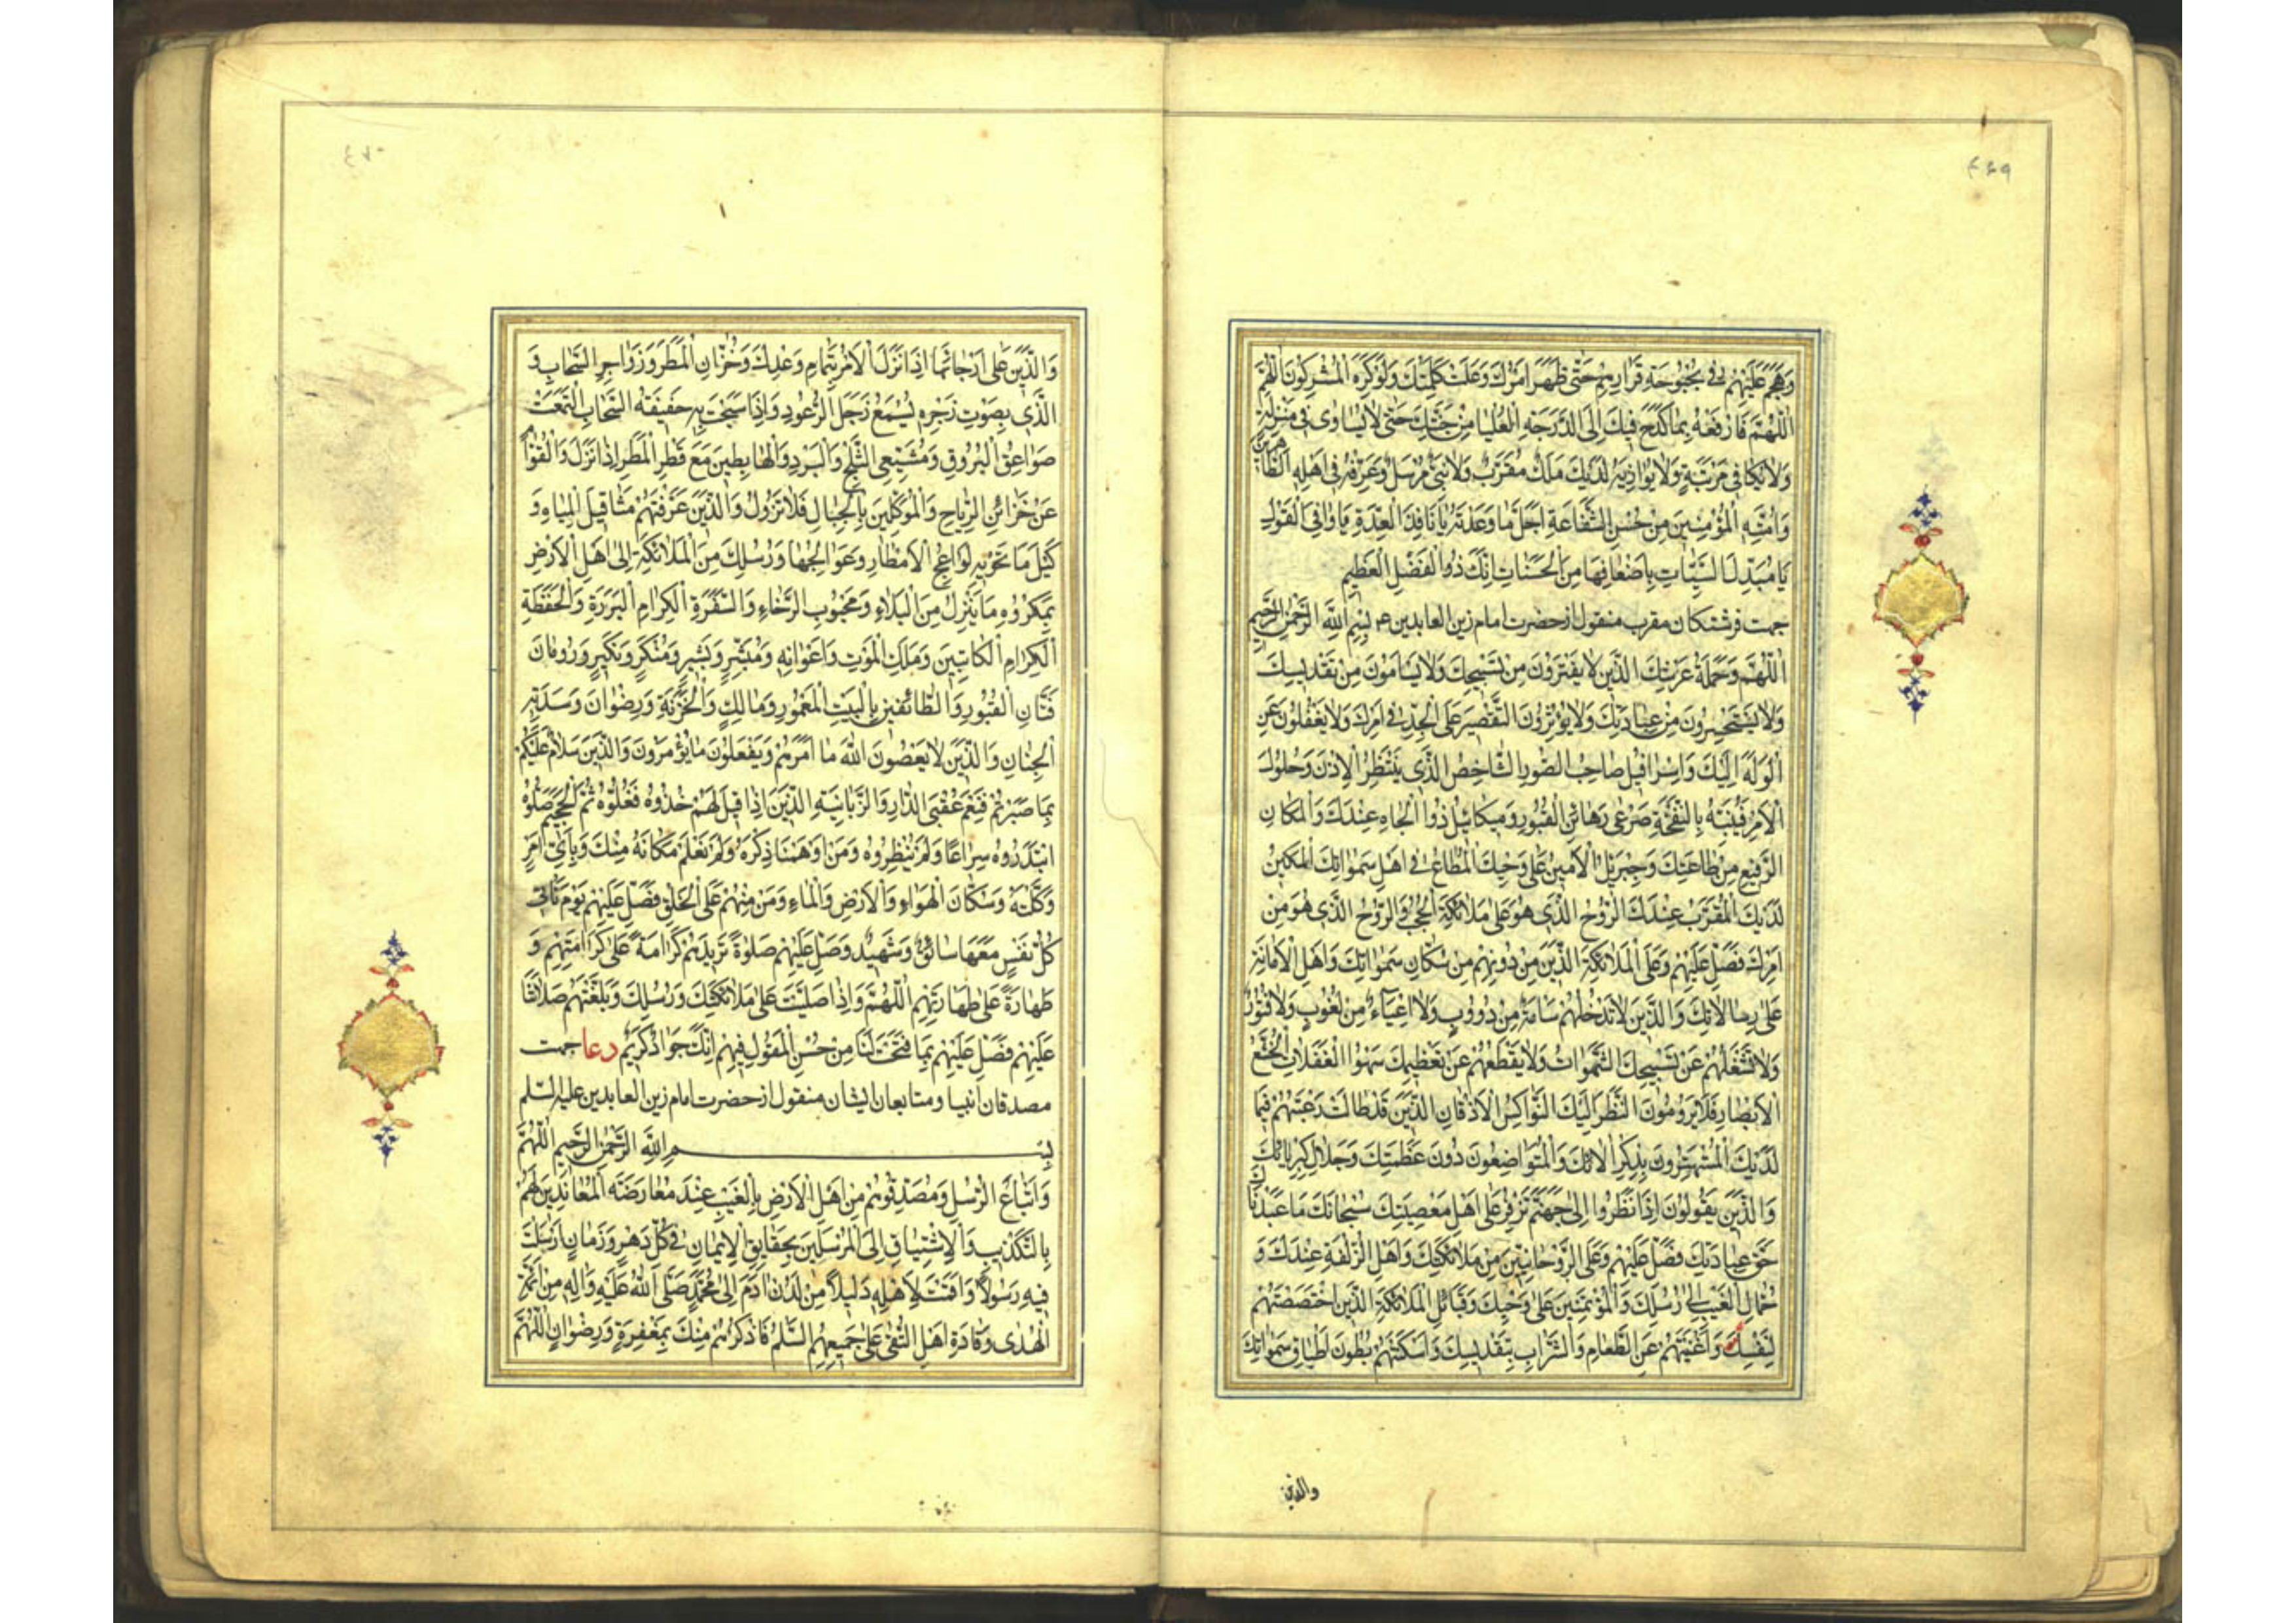 ٤٦٩
وَهَجَمَ عَلَيْهِمْ فِي بُحْبُوحَةِ قَرَارِهِمْ حَتّٰى ظَهَرَ اَمْرُكَ وَعَلَتْ كَلِمَتُكَ وَلَوْ كَرِهَ الْمُشْرِكُونَ اَللّٰهُمَّ
اَللّٰهُمَّ فَارْفَعْهُ بِمَا كَدَحَ فِيكَ اِلَى الدَّرَجَةِ الْعُلْيَا مِنْ جَنَّتِكَ حَتّٰى لَا يُسَاوٰى فِي مَنْزِلَةٍ
وَلَا يُكَافٰى فِي مَرْتَبَةٍ وَلَا يُوَازِيَهُ لَدَيْكَ مَلَكٌ مُقَرَّبٌ وَلَا نَبِيٌّ مُرْسَلٌ وَعَرِّفْهُ فِي اَهْلِهِ الطَّاهِرِينَ
وَاُمَّتِهِ الْمُؤْمِنِينَ مِنْ حُسْنِ الشَّفَاعَةِ اَجَلَّ مَا وَعَدْتَهُ يَا نَافِذَ الْعِدَةِ يَا وَافِيَ الْقَوْلِ
يَا مُبَدِّلَ السَّيِّئَاتِ بِاَضْعَافِهَا مِنَ الْحَسَنَاتِ اِنَّكَ ذُو الْفَضْلِ الْعَظِيمِ
جهت فرشتكان مقرب منقول از حضرت امام زين العابدين ع بِسْمِ اللّٰهِ الرَّحْمٰنِ الرَّحِيمِ
اَللّٰهُمَّ وَحَمَلَةُ عَرْشِكَ الَّذِينَ لَا يَفْتُرُونَ مِنْ تَسْبِيحِكَ وَلَا يَسْاَمُونَ مِنْ تَقْدِيسِكَ
وَلَا يَسْتَحْسِرُونَ مِنْ عِبَادَتِكَ وَلَا يُؤْثِرُونَ التَّقْصِيرَ عَلَى الْجِدِّ فِي اَمْرِكَ وَلَا يَغْفُلُونَ عَنِ
الْوَلَهِ اِلَيْكَ وَاِسْرَافِيلُ صَاحِبُ الصُّورِ الشَّاخِصُ الَّذِي يَنْتَظِرُ الْاِذْنَ وَحُلُولَ
الْاَمْرِ فَيُنَبِّهُ بِالنَّفْخَةِ صَرْعٰى رَهَائِنِ الْقُبُورِ وَمِيكَائِيلُ ذُو الْجَاهِ عِنْدَكَ وَالْمَكَانِ
الرَّفِيعِ مِنْ طَاعَتِكَ وَجِبْرِيلُ الْاَمِينُ عَلٰى وَحْيِكَ الْمُطَاعُ فِي اَهْلِ سَمٰوَاتِكَ الْمَكِينُ
لَدَيْكَ الْمُقَرَّبُ عِنْدَكَ الرُّوحُ الَّذِي هُوَ عَلٰى مَلَائِكَةِ الْحُجُبِ وَالرُّوحُ الَّذِي هُوَ مِنْ
اَمْرِكَ فَصَلِّ عَلَيْهِمْ وَعَلَى الْمَلَائِكَةِ الَّذِينَ مِنْ دُونِهِمْ مِنْ سُكَّانِ سَمٰوَاتِكَ وَاَهْلِ الْاَمَانَةِ
عَلٰى رِسَالَاتِكَ وَالَّذِينَ لَا تَدْخُلُهُمْ سَاْمَةٌ مِنْ دُؤُوبٍ وَلَا اِعْيَاءٌ مِنْ لُغُوبٍ وَلَا فُتُورٌ
وَلَا تَشْغَلُهُمْ عَنْ تَسْبِيحِكَ الشَّهَوَاتُ وَلَا يَقْطَعُهُمْ عَنْ تَعْظِيمِكَ سَهْوُ الْغَفَلَاتِ الْخُشَّعُ
الْاَبْصَارِ فَلَا يَرُومُونَ النَّظَرَ اِلَيْكَ النَّوَاكِسُ الْاَذْقَانِ الَّذِينَ قَدْ طَالَتْ رَغْبَتُهُمْ فِيمَا
لَدَيْكَ الْمُسْتَهْتَرُونَ بِذِكْرِ اٰلَائِكَ وَالْمُتَوَاضِعُونَ دُونَ عَظَمَتِكَ وَجَلَالِ كِبْرِيَائِكَ
وَالَّذِينَ يَقُولُونَ اِذَا نَظَرُوا اِلٰى جَهَنَّمَ تَزْفِرُ عَلٰى اَهْلِ مَعْصِيَتِكَ سُبْحَانَكَ مَا عَبَدْنَاكَ
حَقَّ عِبَادَتِكَ فَصَلِّ عَلَيْهِمْ وَعَلَى الرَّوْحَانِيِّينَ مِنْ مَلَائِكَتِكَ وَاَهْلِ الزُّلْفَةِ عِنْدَكَ وَ
حُمَّالِ الْغَيْبِ اِلٰى رُسُلِكَ وَالْمُؤْتَمَنِينَ عَلٰى وَحْيِكَ وَقَبَائِلِ الْمَلَائِكَةِ الَّذِينَ اخْتَصَصْتَهُمْ
لِنَفْسِكَ وَاَغْنَيْتَهُمْ عَنِ الطَّعَامِ وَالشَّرَابِ بِتَقْدِيسِكَ وَاَسْكَنْتَهُمْ بُطُونَ اَطْبَاقِ سَمٰوَاتِكَ
والذين
٤٧٠
وَالَّذِينَ عَلٰى اَرْجَائِهَا اِذَا نَزَلَ الْاَمْرُ بِتَمَامِ وَعْدِكَ وَخُزَّانِ الْمَطَرِ وَزَوَاجِرِ السَّحَابِ وَ
الَّذِي بِصَوْتِ زَجْرِهِ يُسْمَعُ زَجَلُ الرُّعُودِ وَاِذَا سَبَحَتْ بِهِ حَفِيفَةُ السَّحَابِ الْتَمَعَتْ
صَوَاعِقُ الْبُرُوقِ وَمُشَيِّعِي الثَّلْجِ وَالْبَرَدِ وَالْهَابِطِينَ مَعَ قَطْرِ الْمَطَرِ اِذَا نَزَلَ وَالْقُوَّامِ
عَنْ خَزَائِنِ الرِّيَاحِ وَالْمُوَكَّلِينَ بِالْجِبَالِ فَلَا تَزُولُ وَالَّذِينَ عَرَّفْتَهُمْ مَثَاقِيلَ الْمِيَاهِ وَ
كَيْلَ مَا تَحْوِيهِ لَوَاعِجُ الْاَمْطَارِ وَعَوَالِجُهَا وَرُسُلِكَ مِنَ الْمَلَائِكَةِ اِلٰى اَهْلِ الْاَرْضِ
بِمَكْرُوهِ مَا يَنْزِلُ مِنَ الْبَلَاءِ وَمَحْبُوبِ الرَّخَاءِ وَالسَّفَرَةِ الْكِرَامِ الْبَرَرَةِ وَالْحَفَظَةِ
الْكِرَامِ الْكَاتِبِينَ وَمَلَكِ الْمَوْتِ وَاَعْوَانِهِ وَمُبَشِّرٍ وَبَشِيرٍ وَمُنْكَرٍ وَنَكِيرٍ وَرُومَانَ
فَتَّانِ الْقُبُورِ وَالطَّائِفِينَ بِالْبَيْتِ الْمَعْمُورِ وَمَالِكٍ وَالْخَزَنَةِ وَرِضْوَانَ وَسَدَنَةِ
الْجِنَانِ وَالَّذِينَ لَا يَعْصُونَ اللّٰهَ مَا اَمَرَهُمْ وَيَفْعَلُونَ مَا يُؤْمَرُونَ وَالَّذِينَ سَلَامٌ عَلَيْكُمْ
بِمَا صَبَرْتُمْ فَنِعْمَ عُقْبَى الدَّارِ وَالزَّبَانِيَةِ الَّذِينَ اِذَا قِيلَ لَهُمْ خُذُوهُ فَغُلُّوهُ ثُمَّ الْجَحِيمَ صَلُّوهُ
ابْتَدَرُوهُ سِرَاعًا وَلَمْ يُنْظِرُوهُ وَمَنْ اَوْهَمْنَا ذِكْرَهُ وَلَمْ نَعْلَمْ مَكَانَهُ مِنْكَ وَبِاَيِّ اَمْرٍ
وَكَّلْتَهُ وَسُكَّانَ الْهَوَاءِ وَالْاَرْضِ وَالْمَاءِ وَمَنْ مِنْهُمْ عَلَى الْخَلْقِ فَصَلِّ عَلَيْهِمْ يَوْمَ تَأْتِي
كُلُّ نَفْسٍ مَعَهَا سَائِقٌ وَشَهِيدٌ وَصَلِّ عَلَيْهِمْ صَلٰوةً تَزِيدُهُمْ كَرَامَةً عَلٰى كَرَامَتِهِمْ وَ
طَهَارَةً عَلٰى طَهَارَتِهِمْ اَللّٰهُمَّ وَاِذَا صَلَّيْتَ عَلٰى مَلَائِكَتِكَ وَرُسُلِكَ وَبَلَّغْتَهُمْ صَلَاتَنَا
عَلَيْهِمْ فَصَلِّ عَلَيْهِمْ بِمَا فَتَحْتَ لَنَا مِنْ حُسْنِ الْقَوْلِ فِيهِمْ اِنَّكَ جَوَادٌ كَرِيمٌ دعا جهت
مصدقان انبيا ومتابعان ايشان منقول از حضرت امام زين العابدين عليه السلم
بِسْمِ اللّٰهِ الرَّحْمٰنِ الرَّحِيمِ اَللّٰهُمَّ
وَاَتْبَاعُ الرُّسُلِ وَمُصَدِّقُوهُمْ مِنْ اَهْلِ الْاَرْضِ بِالْغَيْبِ عِنْدَ مُعَارَضَةِ الْمُعَانِدِينَ لَهُمْ
بِالتَّكْذِيبِ وَالْاِشْتِيَاقِ اِلَى الْمُرْسَلِينَ بِحَقَايِقِ الْاِيمَانِ فِي كُلِّ دَهْرٍ وَزَمَانٍ اَرْسَلْتَ
فِيهِ رَسُولًا وَاَقَمْتَ لِاَهْلِهِ دَلِيلًا مِنْ لَدُنْ اٰدَمَ اِلٰى مُحَمَّدٍ صَلَّى اللّٰهُ عَلَيْهِ وَاٰلِهِ مِنْ اَئِمَّةِ
الْهُدٰى وَقَادَةِ اَهْلِ التُّقٰى عَلٰى جَمِيعِهِمُ السَّلَمُ فَاذْكُرْهُمْ مِنْكَ بِمَغْفِرَةٍ وَرِضْوَانٍ اَللّٰهُمَّ